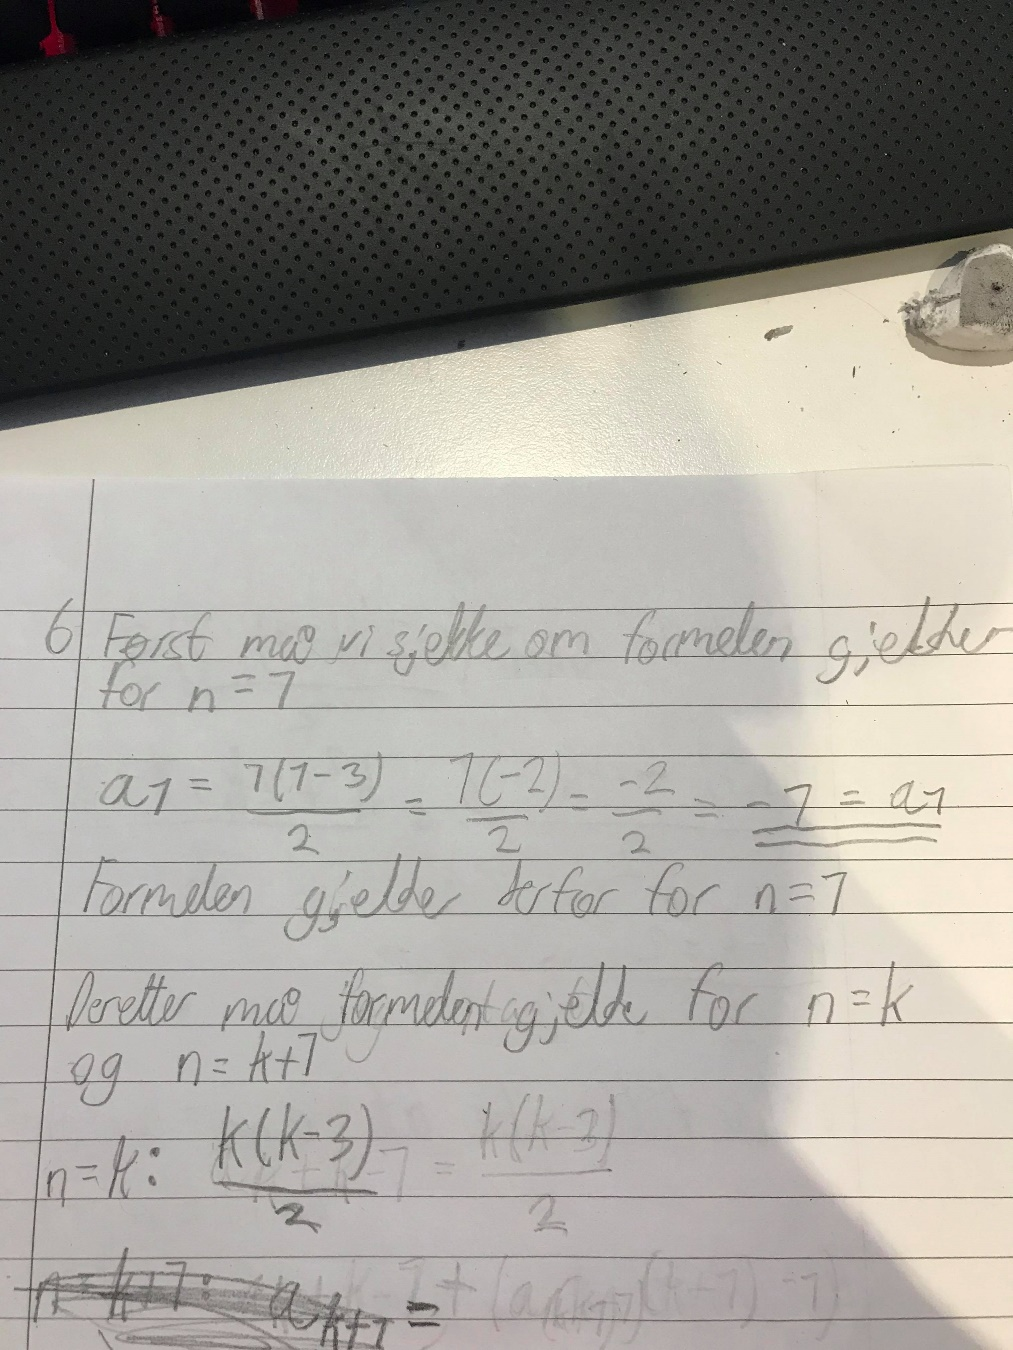 6 Først må vi sjekke om formelen gjelder
for n = 1
a1 = 1(1-3)/2 = 1(-2)/2 = -2/2 = -1 = a1
Formelen gjelder derfor for n=1
Deretter må formelen gjelde for n=k
og n= k+1
n=k: k(k-3)/2
a k+1 =